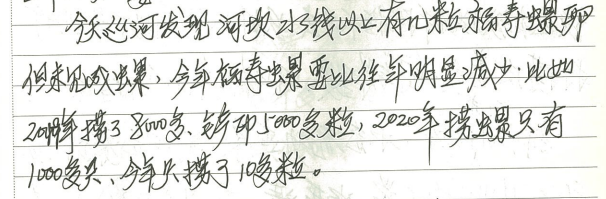 今天巡河发现河坎水线以上有几粒福寿螺卵
但未见成螺,今年福寿螺要比往年明显减少.比如
2019年捞了8000多、铲卵5000多粒,2020年捞螺只有
1000多只、今年只捞了10多粒。